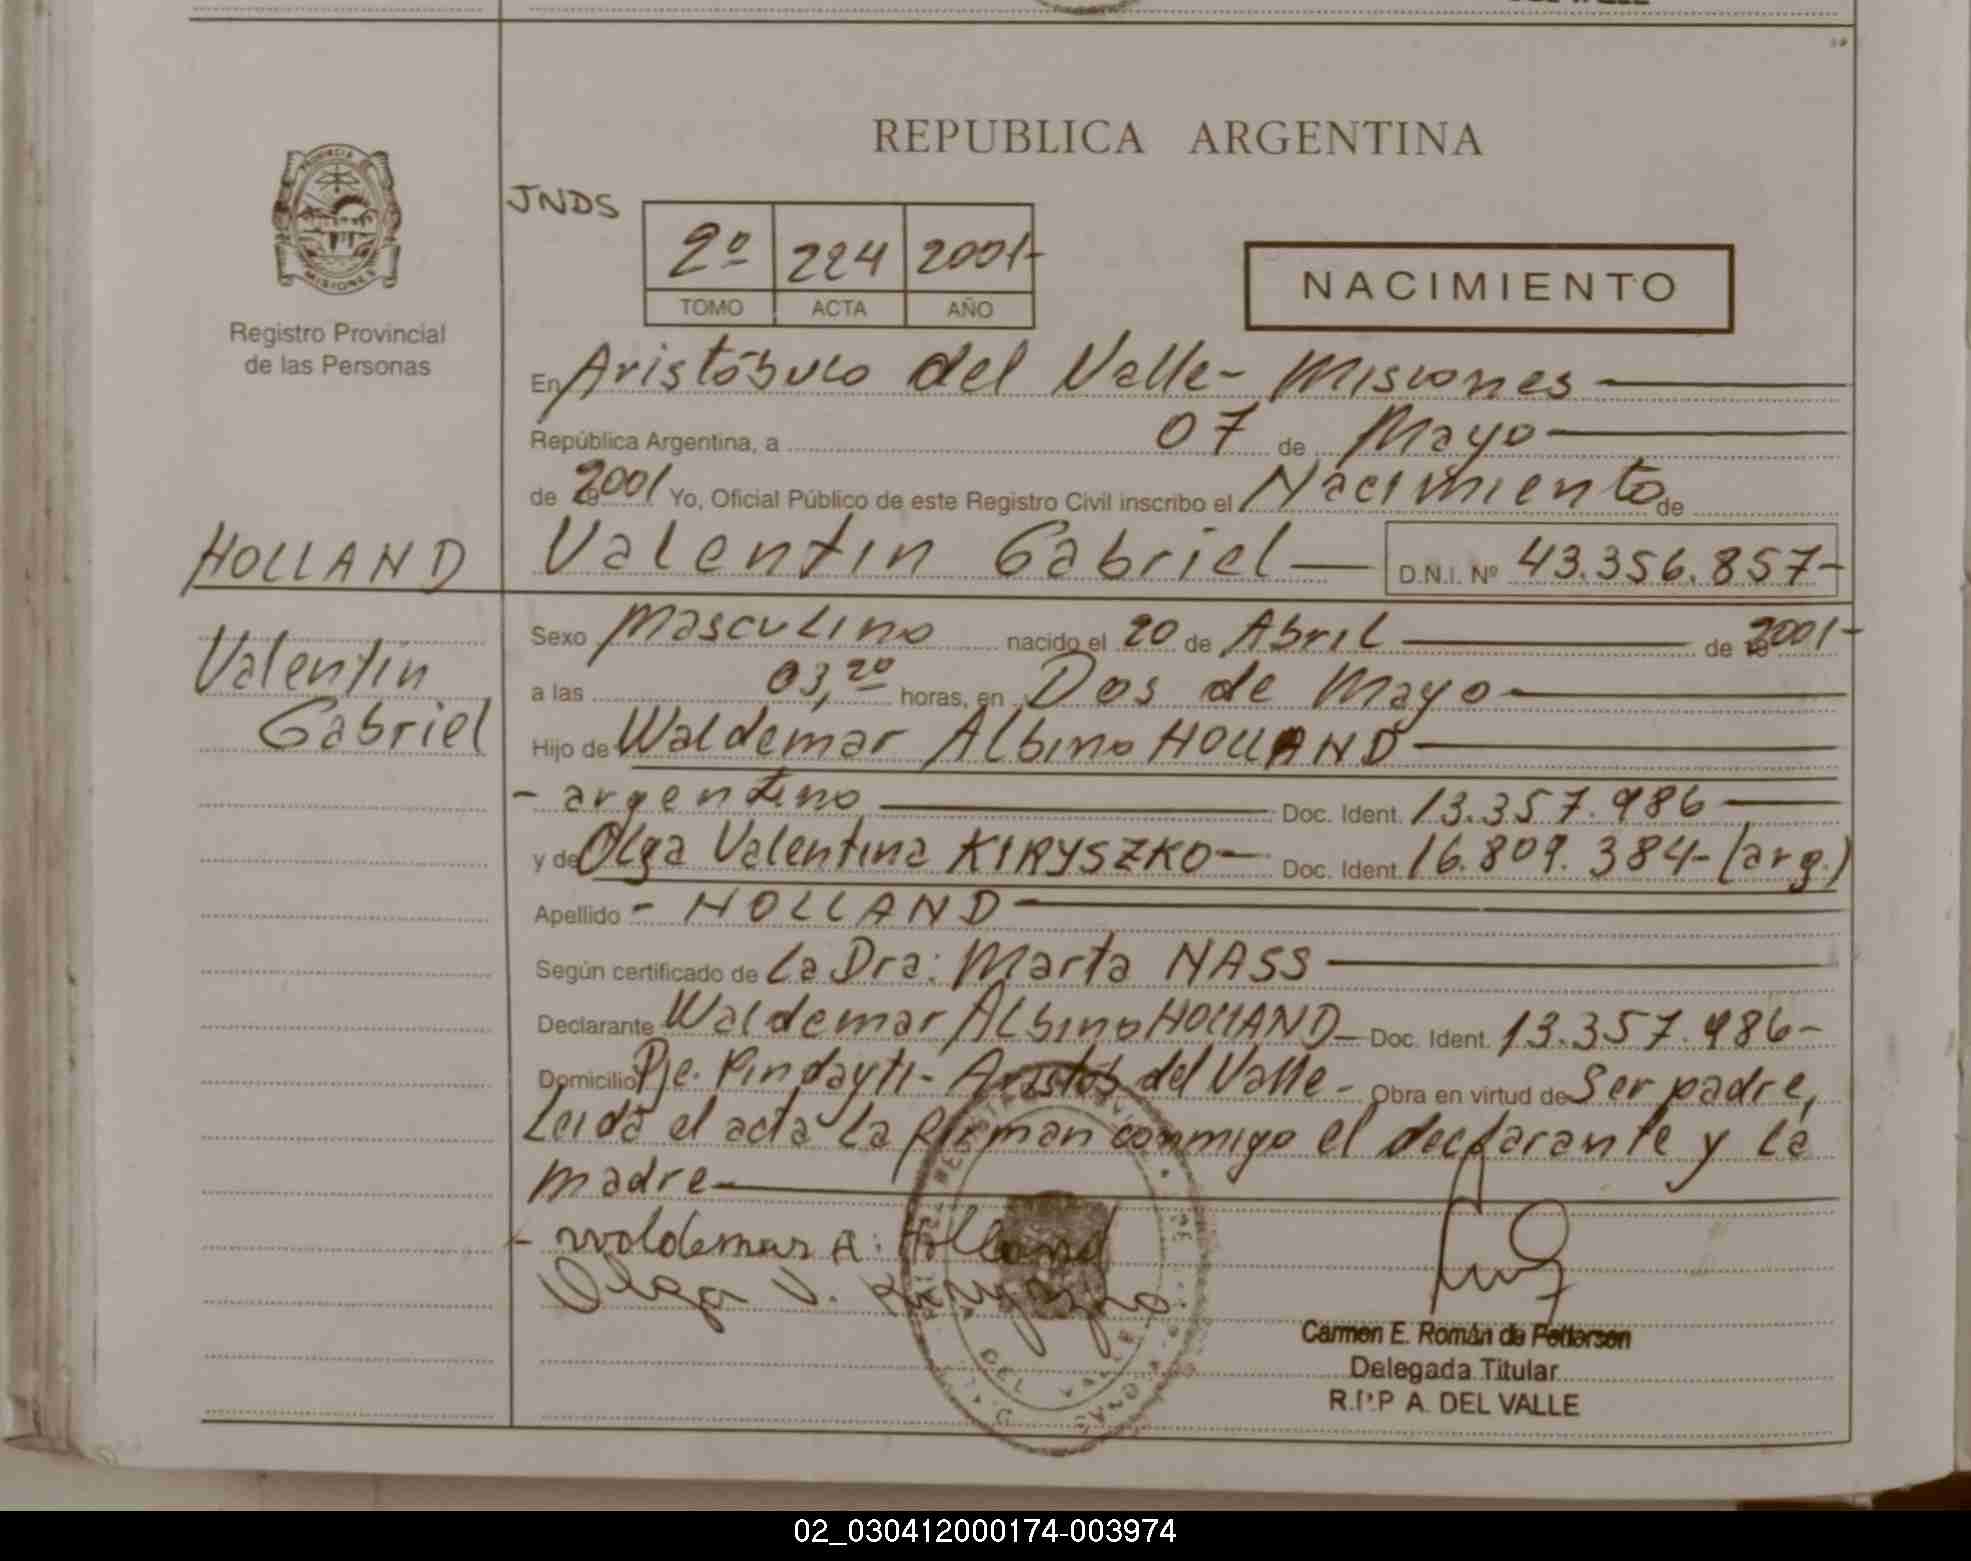 REPUBLICA ARGENTINA
PROVINCIA
MISIONES
Registro Provincial
de las Personas
JNDS
2º 224 2001-
TOMO ACTA AÑO
NACIMIENTO
En Aristóbulo del Valle- Misiones
República Argentina, a 07 de Mayo
de 2001 Yo, Oficial Público de este Registro Civil inscribo el Nacimiento de
HOLLAND
Valentin Gabriel
Valentin Gabriel D.N.I. Nº 43.356.857-
Sexo Masculino nacido el 20 de Abril de 2001-
a las 03,20 horas, en Dos de Mayo
Hijo de Waldemar Albino HOLLAND
- argentino Doc. Ident. 13.357.986
y de Olga Valentina KIRYSZKO- Doc. Ident. 16.809.384-(arg.)
Apellido - HOLLAND
Según certificado de La Dra: Marta NASS
Declarante Waldemar Albino HOLLAND- Doc. Ident. 13.357.986-
Domicilio Pje. Pindayti- Aristób del Valle- Obra en virtud de Ser padre,
Leida el acta la firman conmigo el declarante y la
madre
- woldemar A. Holland
Olga V.
DEL VALLE
Carmen E. Román de Petterson
Delegada Titular
R.P.P A. DEL VALLE
02_030412000174-003974